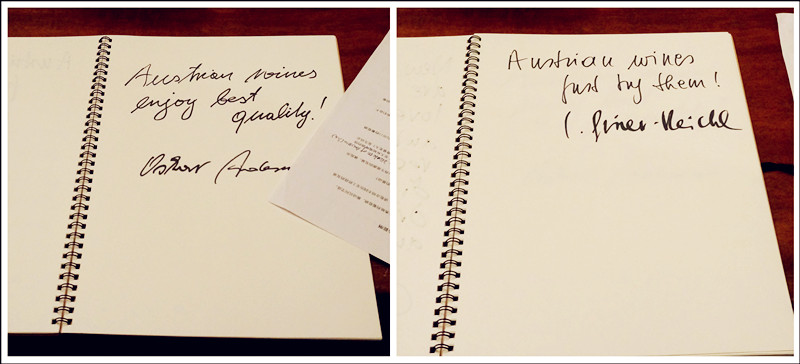 Austrian wines
enjoy best
quality!
Oskar
Austrian wines
just try them!
I. Giner-Reichl